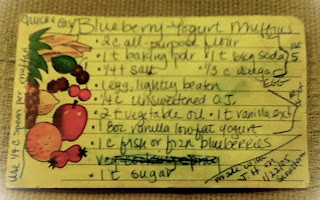 Quick & Easy Blueberry Yogurt Muffins
• 2 c all purpose flour
• 1 t baking pdr 1 t bkg soda
• 1/4 t salt 1/3 c sugar
• 1 egg, lightly beaten
• 1/4 c unsweetened O.J.
• 2 t vegetable oil • 1 t vanilla ext
• 1 8oz vanilla lowfat yogurt
• 1 c fresh or frzn blueberries
• Veg cooking spray
• 1 t sugar
Use 1/4 c spoon per muffin
made with
J H on
1/22/05